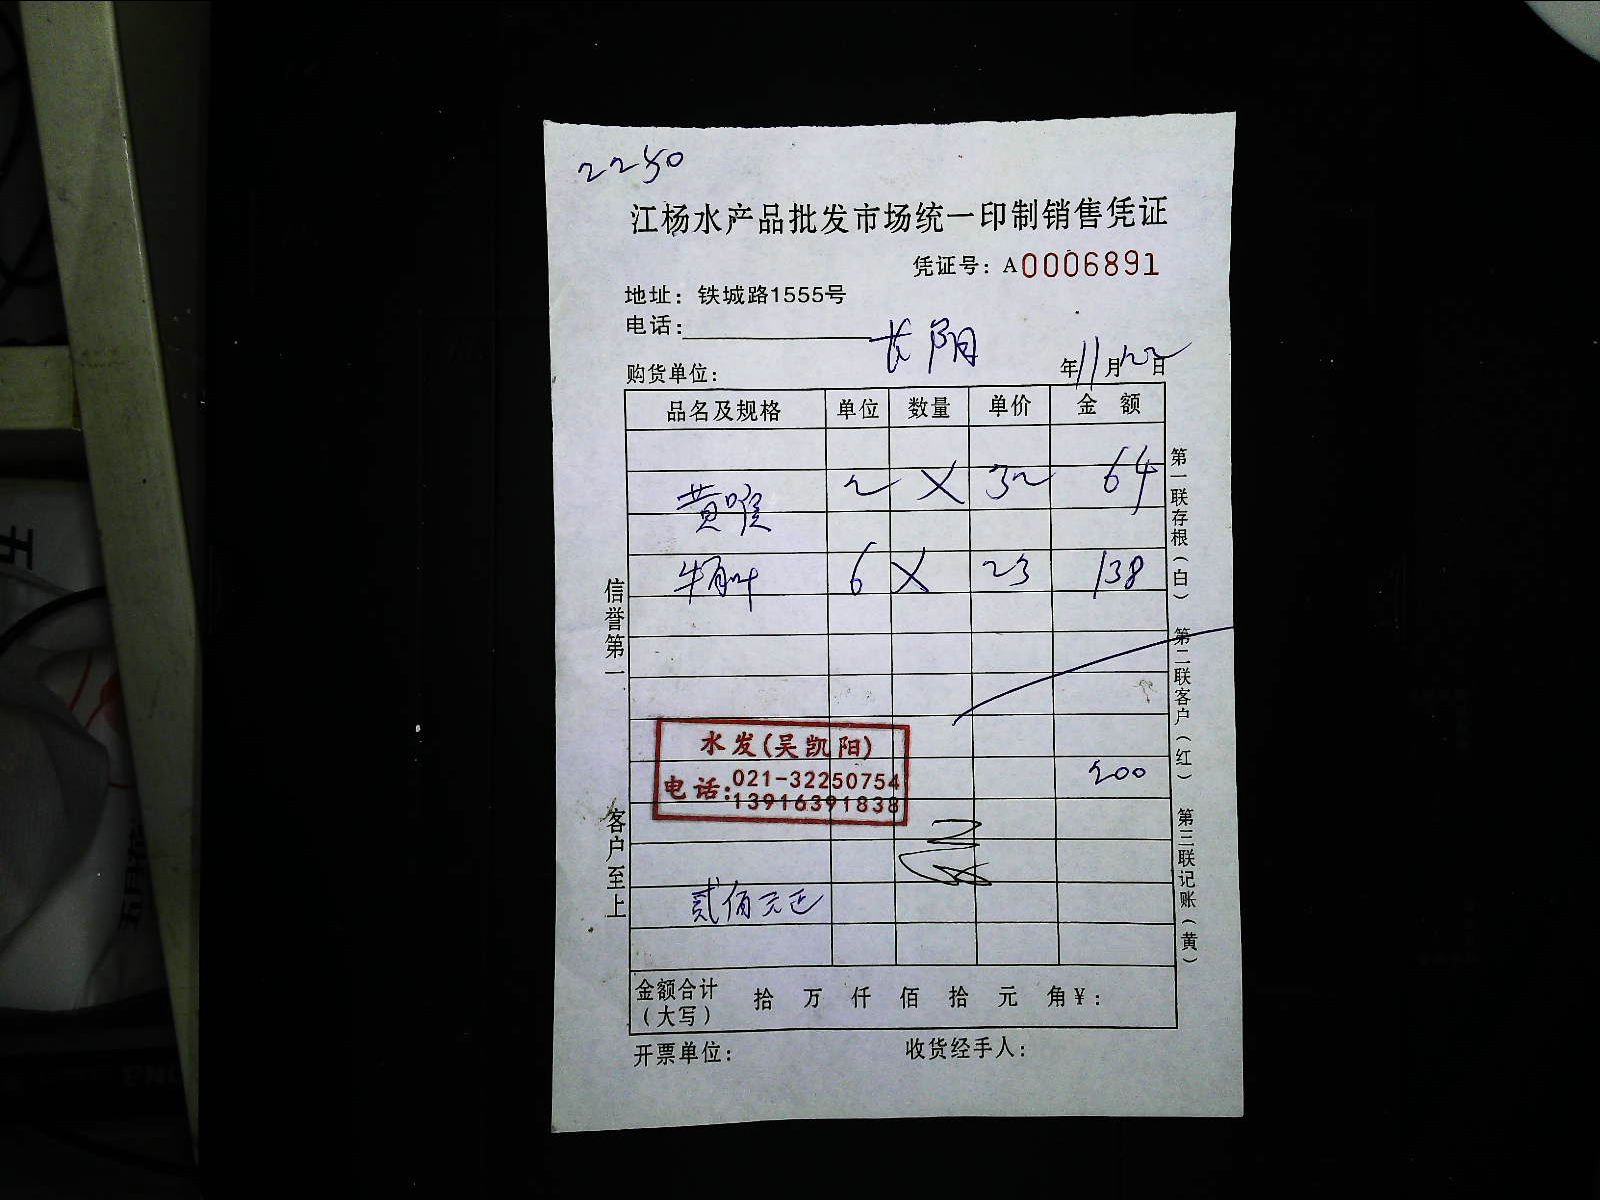 2250
江杨水产品批发市场统一印制销售凭证
凭证号：A0006891
地址：铁城路1555号
电话：
长阳
购货单位：
年11月22日
品名及规格 单位 数量 单价 金额
黄喉 2 X 32 64
牛百叶 6 X 23 138
200
水发(吴凯阳)
电话:021-32250754
13916391838
贰佰元正
金额合计（大写） 拾 万 仟 佰 拾 元 角￥：
开票单位： 收货经手人：
信誉第一
客户至上
第一联存根（白）
第二联客户（红）
第三联记账（黄）